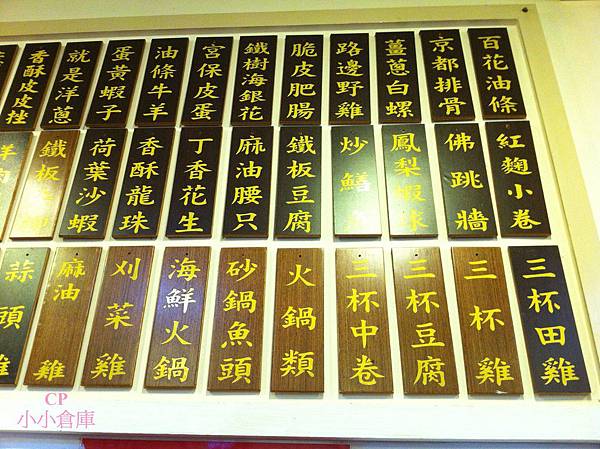 百花油條
京都排骨
薑蔥白螺
路邊野雞
脆皮肥腸
鐵樹海銀花
宮保皮蛋
油條牛羊
蛋黃蝦子
就是洋蔥
香酥皮皮挫
紅麴小卷
佛跳牆
鳳梨蝦球
炒鱔
鐵板豆腐
麻油腰只
丁香花生
香酥龍珠
荷葉沙蝦
鐵板
三杯田雞
三杯雞
三杯豆腐
三杯中卷
火鍋類
砂鍋魚頭
海鮮火鍋
刈菜雞
麻油雞
蒜頭雞
CP
小小倉庫